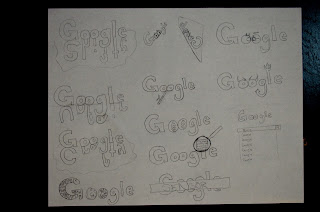 Google
Google
Google
Google
Google
Google
Google
Google
Google
Google
Google
Google
Google